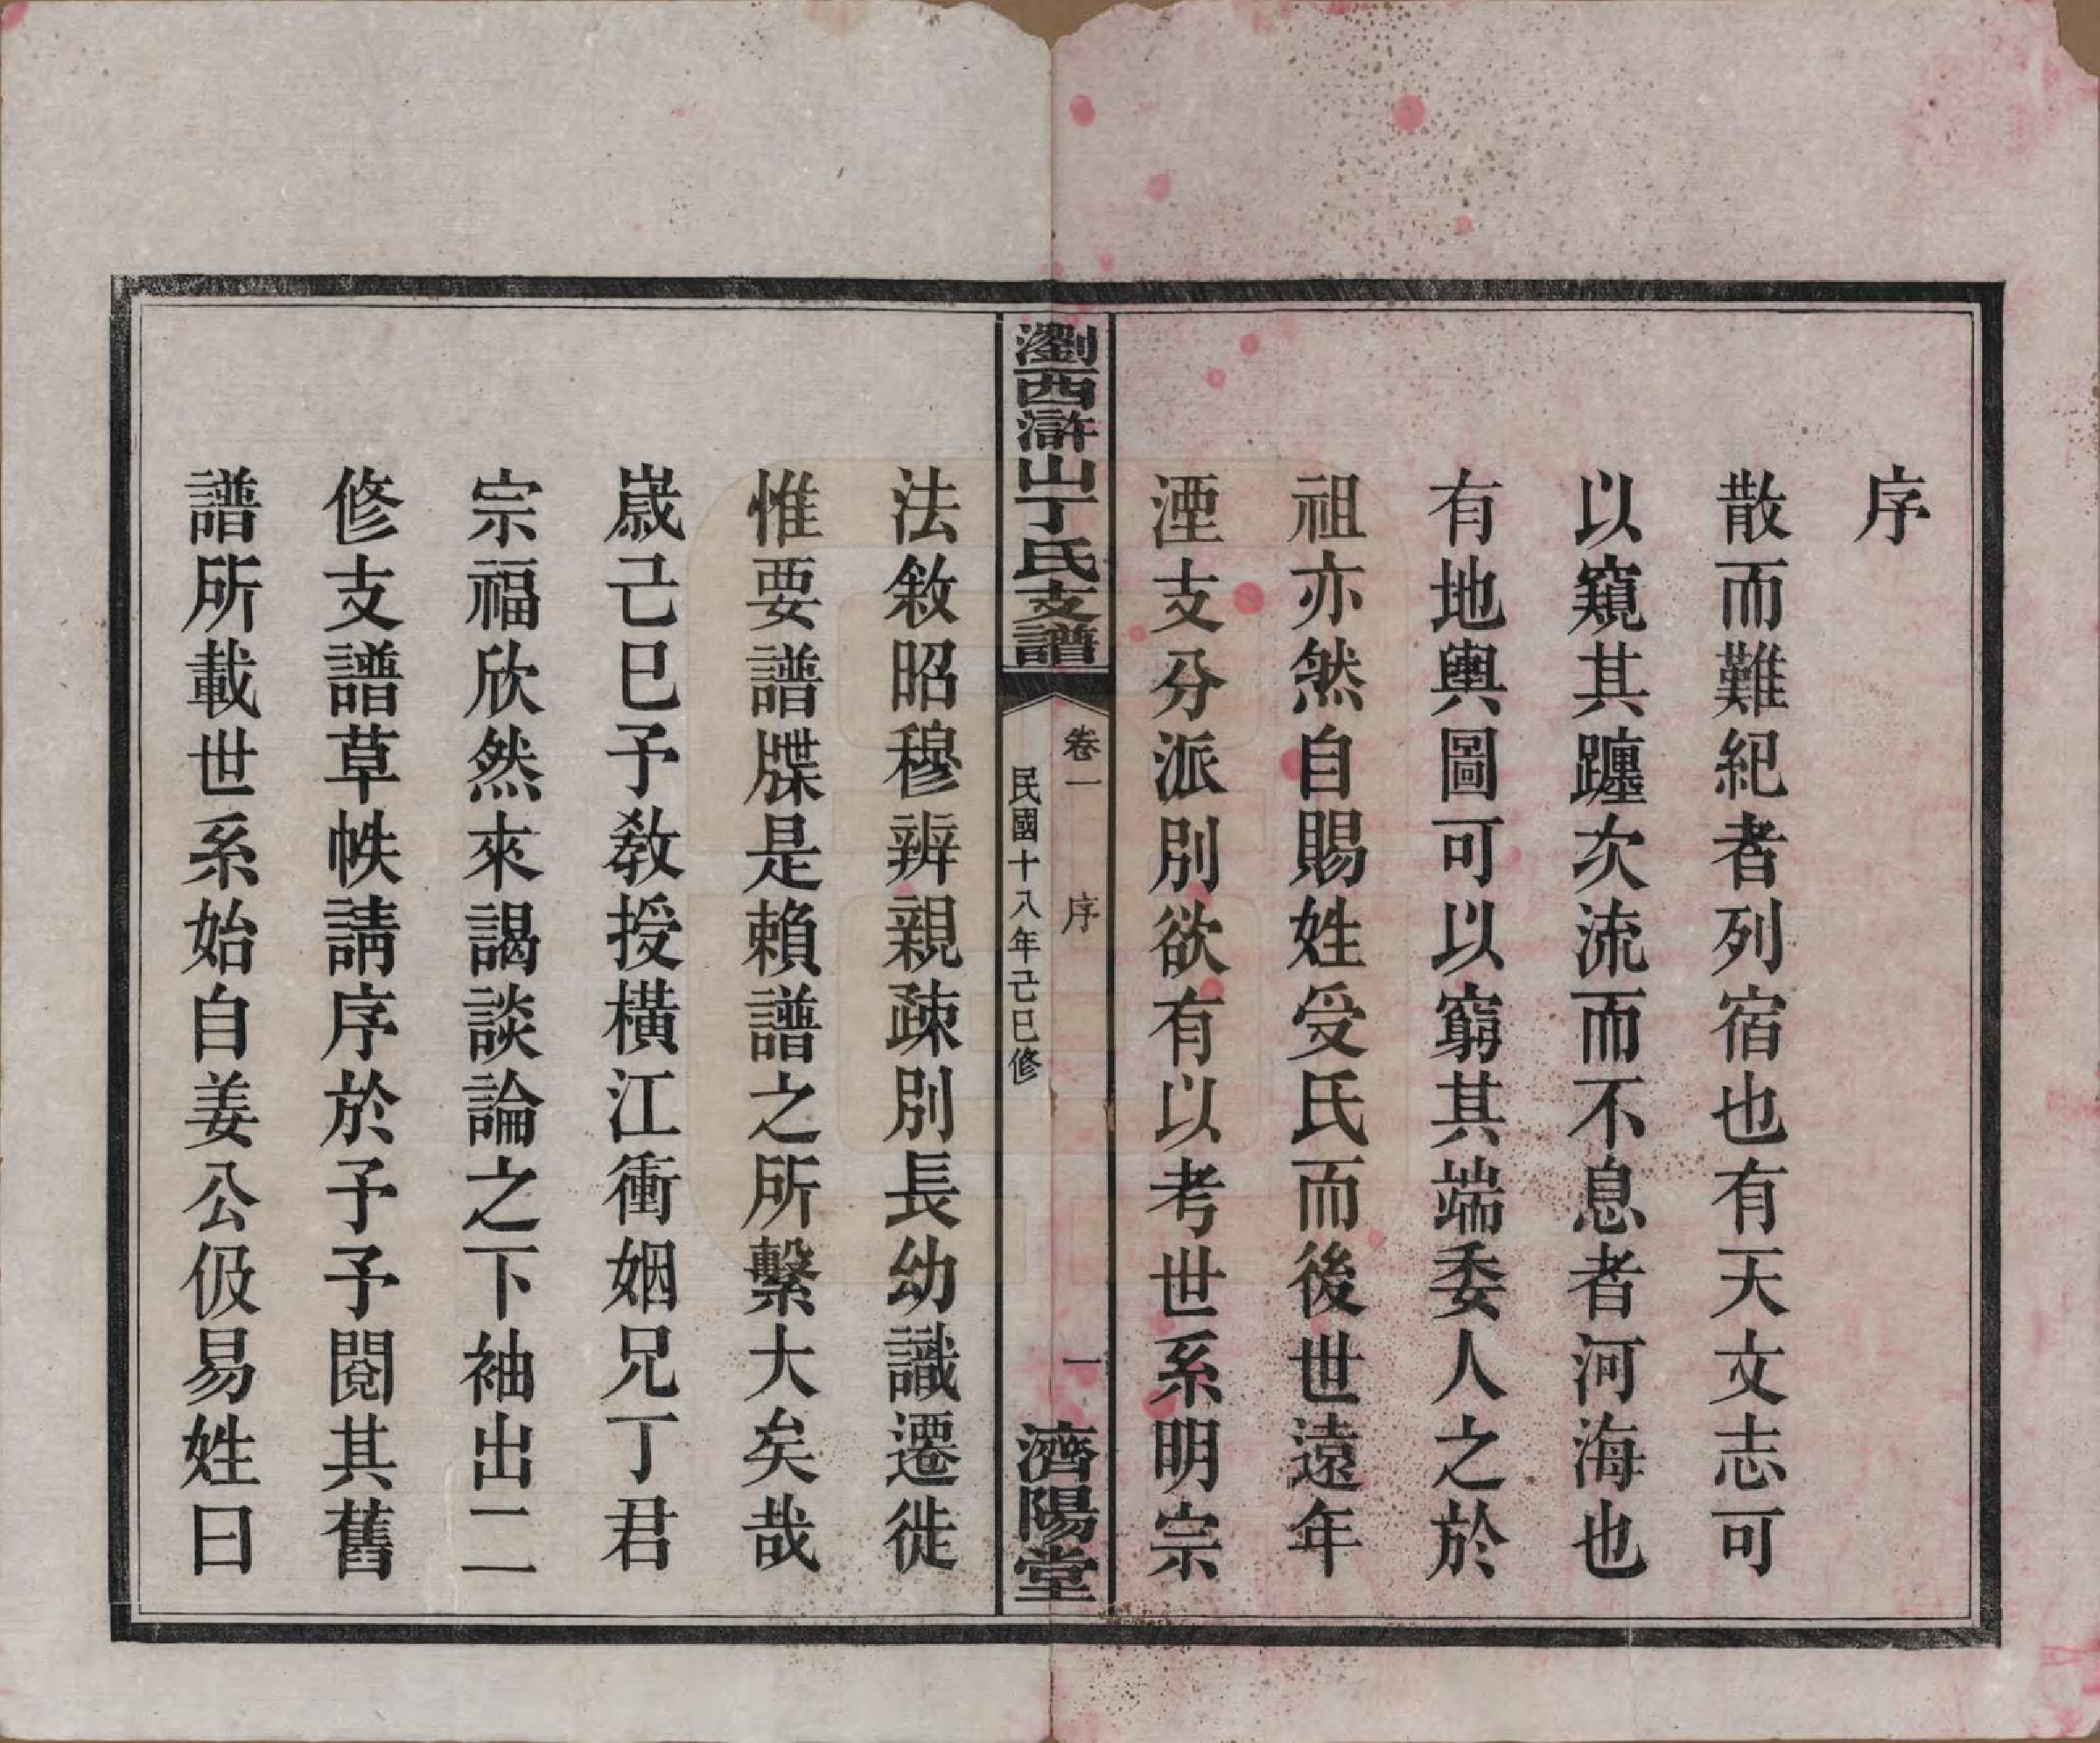 序
散而難紀者列宿也有天文志可
以窺其躔次流而不息者河海也
有地輿圖可以窮其端委人之於
祖亦然自賜姓受氏而後世遠年
湮支分派別欲有以考世系明宗
瀏西滸山丁氏支譜
卷一
序
一
民國十八年己巳修
濟陽堂
法敘昭穆辨親疎別長幼識遷徙
惟要譜牒是賴譜之所繫大矣哉
歲己巳予教授橫江衝姻兄丁君
宗福欣然來謁談論之下袖出二
修支譜草帙請序於予予閱其舊
譜所載世系始自姜公伋易姓曰